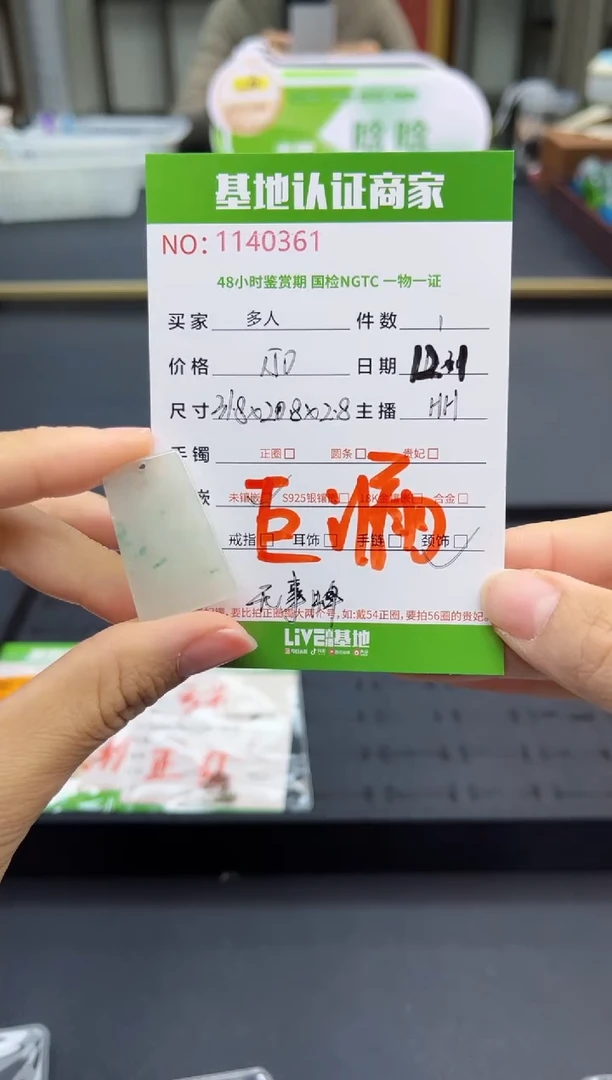 基地认证商家
NO: 1140361
48小时鉴赏期 国检NGTC 一物一证
买家 多人 件数 1
价格 日期 12.31
尺寸 主播 HH
手镯 正圈□ 圆条□ 贵妃□
嵌 未镶嵌□ S925银镶嵌□ 18K金镶嵌□ 合金□
戒指□ 耳饰□ 手链□ 颈饰□
巨漏
无事牌
要比拍正圈圈大两个号,如:戴54正圈,要拍56圈的贵妃。
LIVE 基地